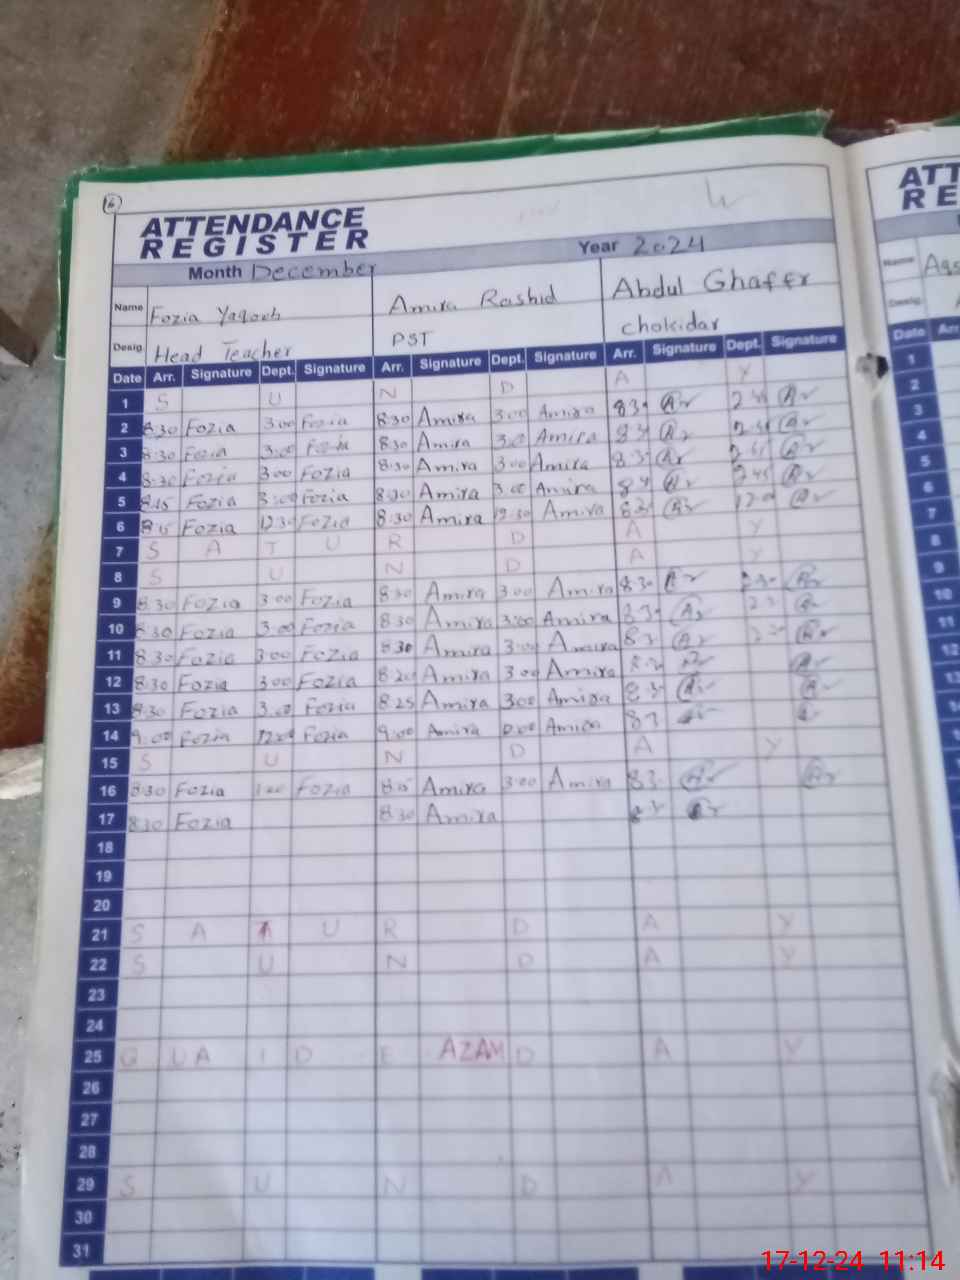 6
ATTENDANCE
REGISTER
Month December Year 2024
Name Fozia Yaqoob Amira Rashid Abdul Ghaffr
Desig. Head Teacher PST chokidar
Date Arr. Signature Dept. Signature Arr. Signature Dept. Signature Arr. Signature Dept. Signature
1 S U N D A Y
2 8:30 Fozia 3:00 Fozia 8:30 Amira 3:00 Amira
3 8:30 Fozia 3:00 Fozia 8:30 Amira 3:00 Amira
4 8:30 Fozia 3:00 Fozia 8:30 Amira 3:00 Amira
5 8:15 Fozia 3:00 Fozia 8:30 Amira 3:00 Amira
6 8:15 Fozia 12:30 Fozia 8:30 Amira 12:30 Amira
7 S A T U R D A Y
8 S U N D A Y
9 8:30 Fozia 3:00 Fozia 8:30 Amira 3:00 Amira 8:30
10 8:30 Fozia 3:00 Fozia 8:30 Amira 3:00 Amira
11 8:30 Fozia 3:00 Fozia 8:30 Amira 3:00 Amira
12 8:30 Fozia 3:00 Fozia 8:20 Amira 3:00 Amira
13 8:30 Fozia 3:00 Fozia 8:25 Amira 3:00 Amira
14 9:00 Fozia Fozia 9:00 Amira Amira
15 S U N D A Y
16 8:30 Fozia Fozia 8:15 Amira 3:00 Amira
17 8:30 Fozia 8:30 Amira
18
19
20
21 S A T U R D A Y
22 S U N D A Y
23
24
25 Q U A I D E AZAM D A Y
26
27
28
29 S U N D A Y
30
31
ATT
RE
Name
Desig.
Date Arr.
1
2
3
4
5
6
7
8
9
10
11
12
17-12-24 11:14